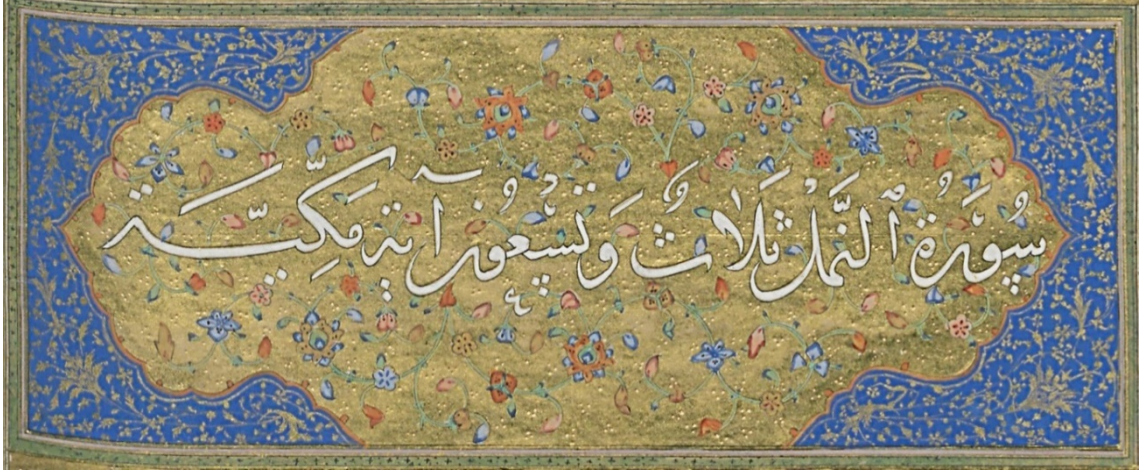 سُورَةُ ٱلنَّمْلِ ثَلَاثٌ وَتِسْعُونَ آيَةٍ مَكِّيَّة